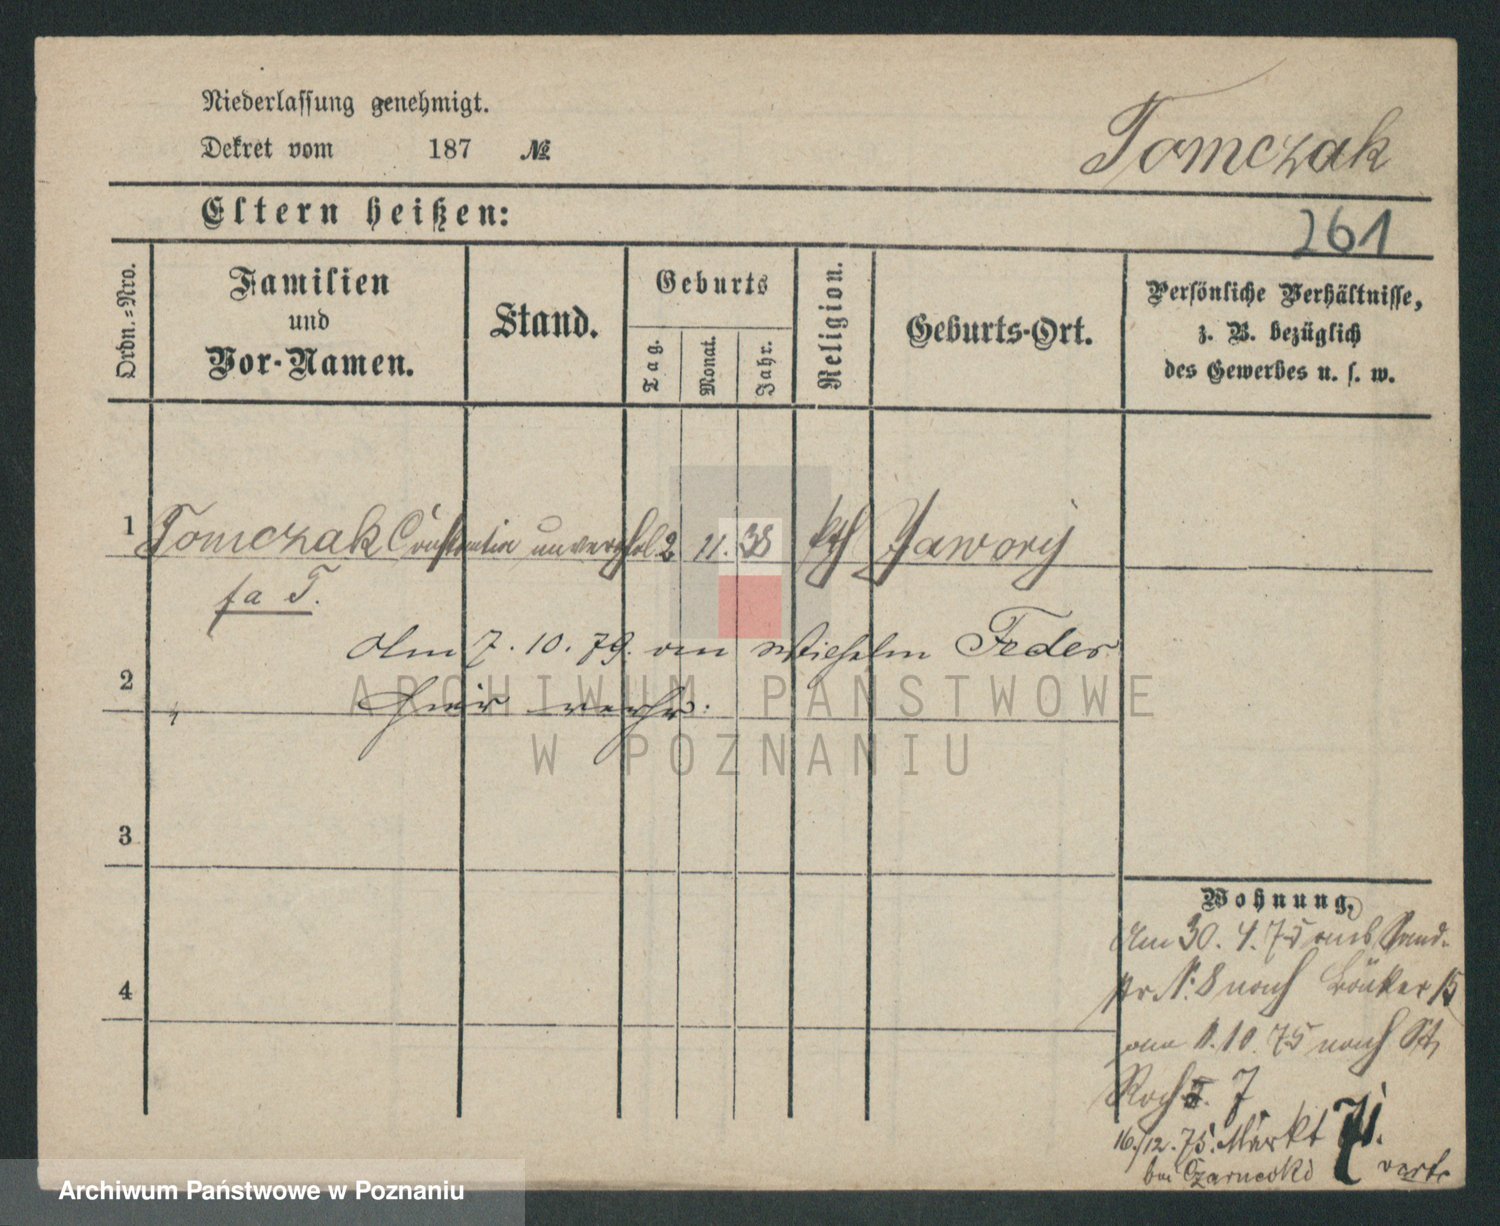 Niederlassung genehmigt.
Dekret vom 187 №
Tomczak
Eltern heißen:
261
Ordn.=Nro.
Familien
und
Vor-Namen.
Stand.
Geburts
Tag.
Monat.
Jahr.
Religion.
Geburts-Ort.
Persönliche Verhältnisse,
z. B. bezüglich
des Gewerbes u. s. w.
1 Tomczak Constantia unverehel 2 11. 38 kth Jawory
fa T.
Am 7. 10. 79. an Wilhelm Feder
2 hier verhr.
3
4
Wohnung.
Am 30. 4. 75 aus Sand-
str N: 8 nach Bäcker 15
am 11. 10. 75 nach St,
Roch 7
16./12. 75. Markt 71.
bei Czarnecki verte
ARCHIWUM PAŃSTWOWE
W POZNANIU
Archiwum Państwowe w Poznaniu